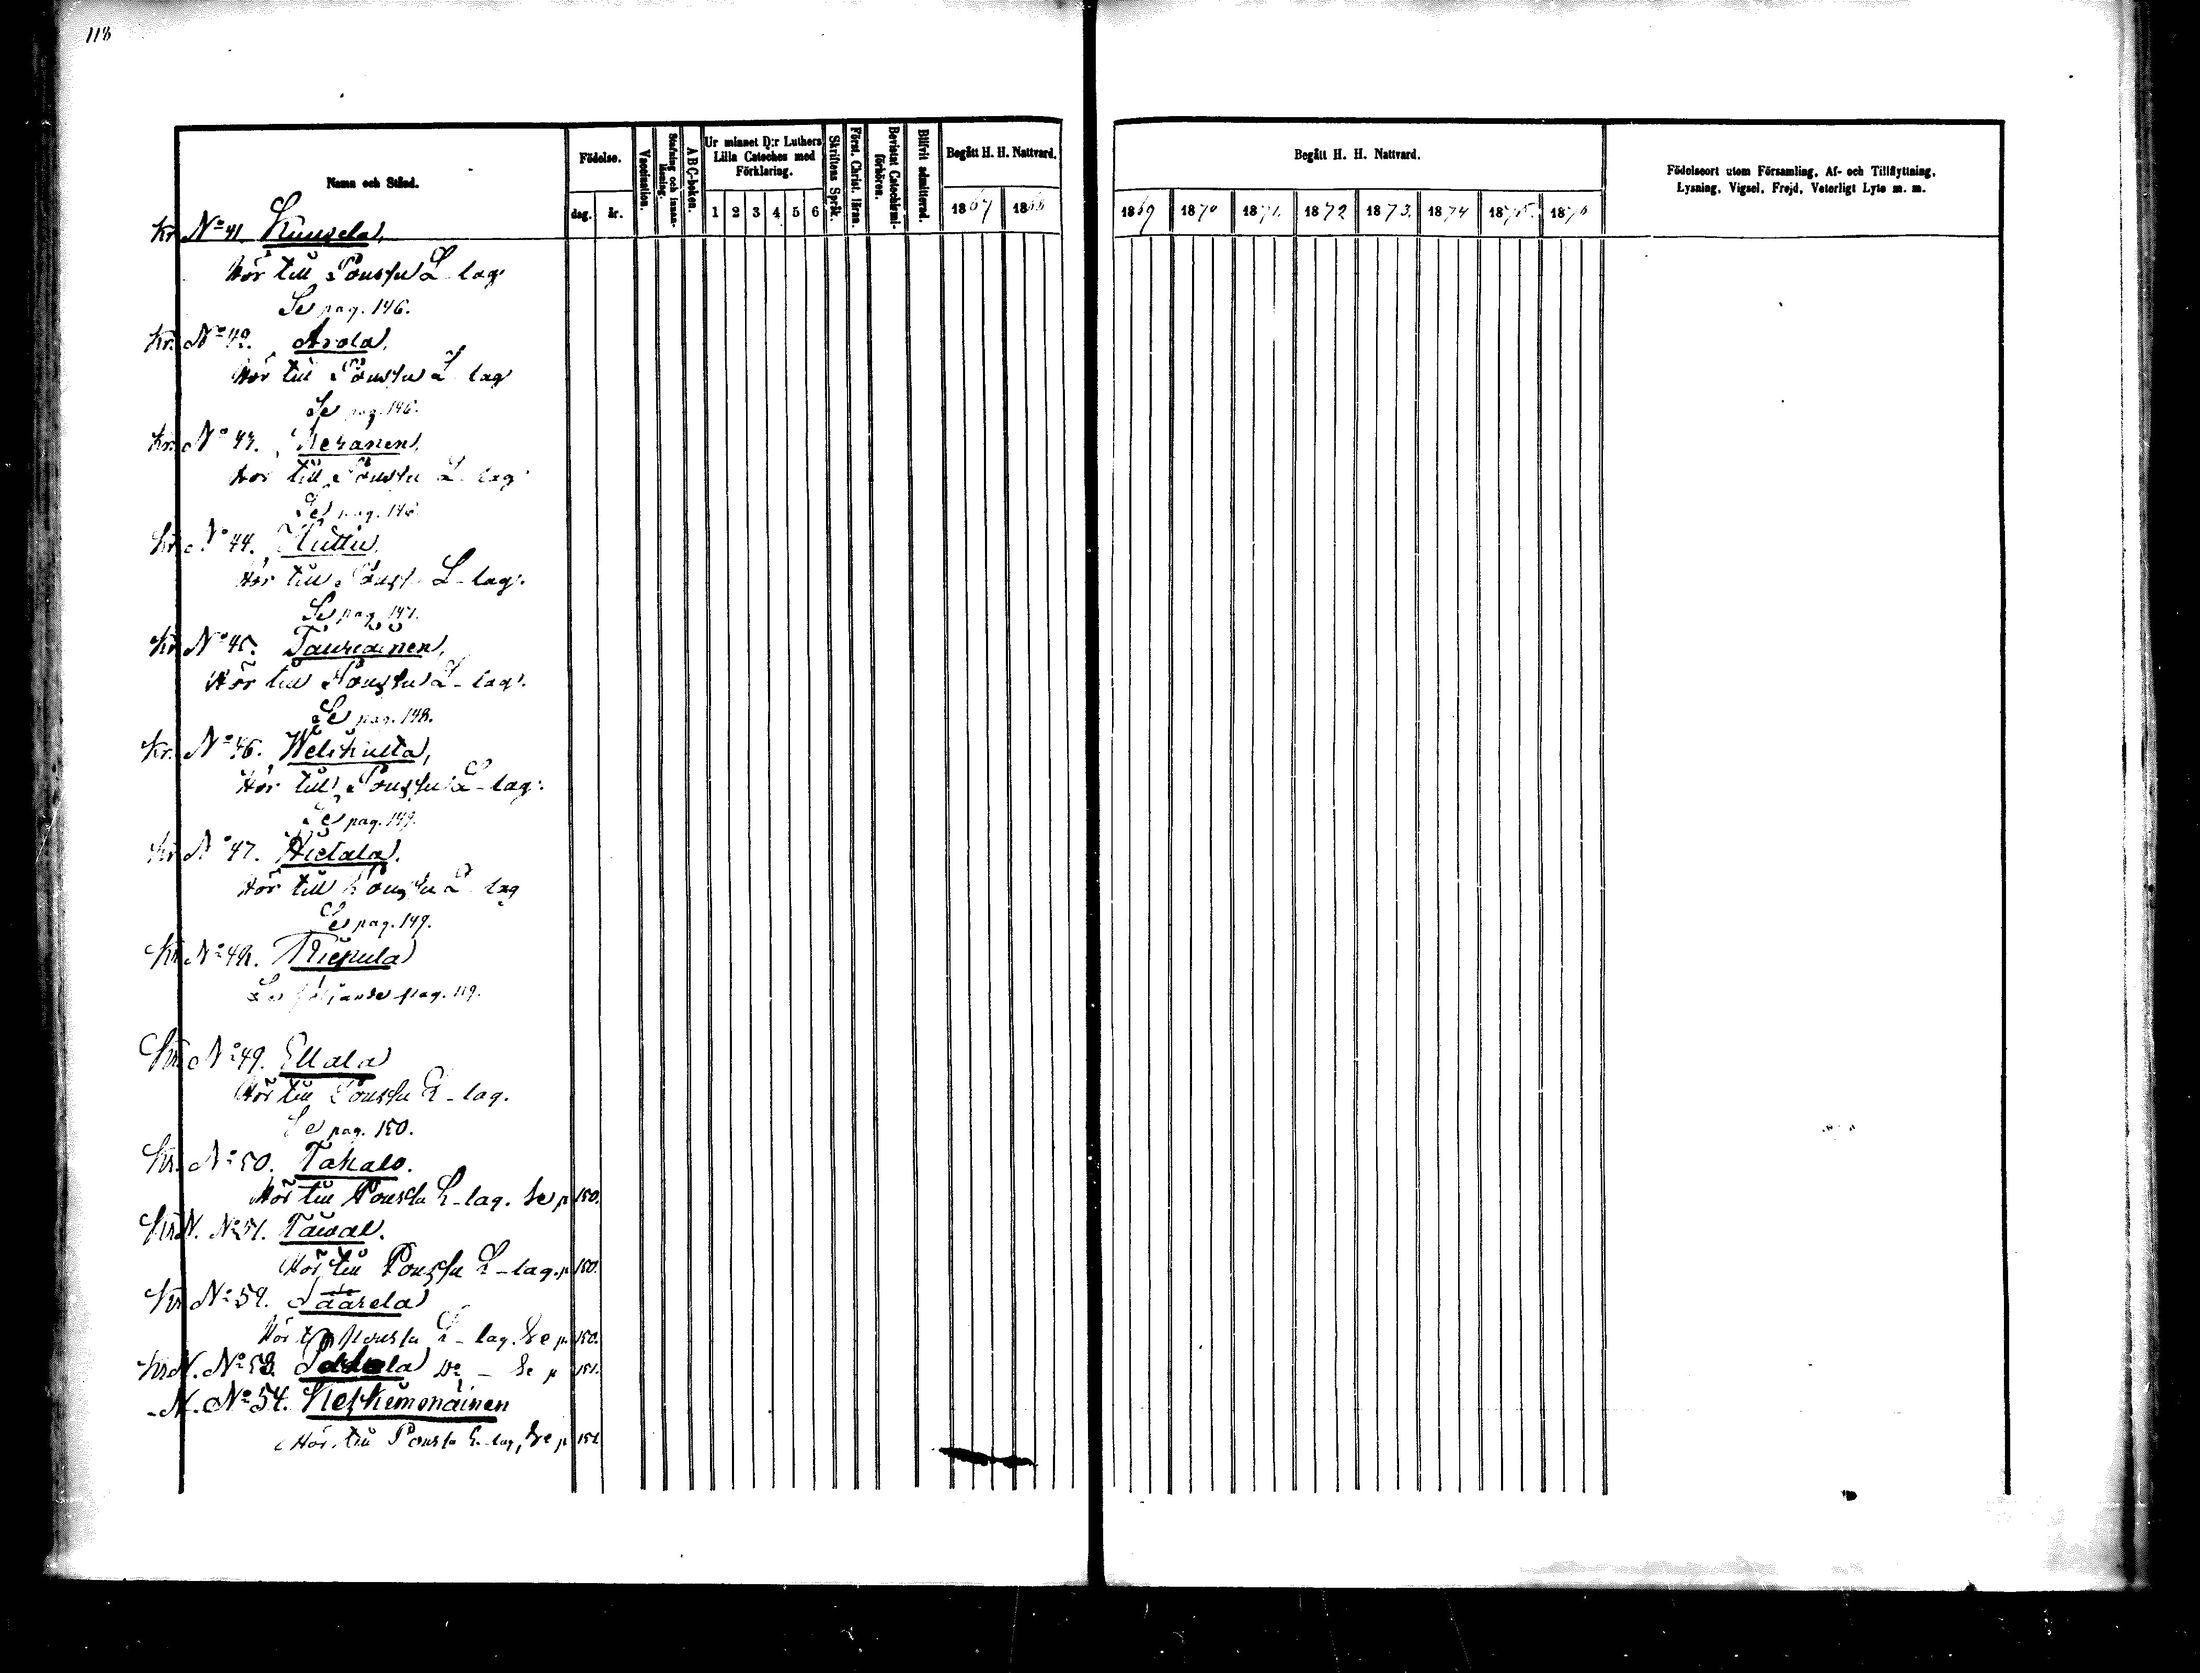 118
Namn och Stånd.
Födelse.
dag. år.
Vaccination.
Stafning och innanläsning.
A B C-boken.
Ur minnet D:r Luthers Lilla Cateches med Förklaring.
1 2 3 4 5 6
Skriftens Språk.
Först. Christ. läran.
Bevistat Catechismiförhören.
Blifvit admitterad.
Begått H. H. Nattvard.
1867 1868
Begått H. H. Nattvard.
1869 1870 1871. 1872 1873. 1874 1875. 1876
Födelseort utom Församling, Af- och Tillflyttning,
Lysning, Vigsel, Frejd, Veterligt Lyte m. m.
Kr. No 41.
Hör till L-lag
Se pag. 146.
Kr. No 42. Arola.
Hör till L lag
Se pag. 146.
Kr. No 43. Keranen,
Hör till L lag
Se pag. 146
Kr. No 44. Huttu,
Hör till L-lag.
Se pag. 147.
Kr. No 45. Tauriainen,
Hör till L-lag.
Se pag. 148.
Kr. No 46.
Hör till L-lag.
Se pag. 149.
Kr. No 47. Hietala.
Hör till L lag
Se pag. 149.
Kr. No 48. Riepula
Se följande pag. 119.
Kr. No 49. Ellala
Hör till L-lag.
Se pag. 150.
Kr. No 50. Takalo.
Hör till L-lag. Se p 150.
Kr N. No 51.
Hör till L-lag. p 150.
Kr No 52. Säärelä
Hör L-lag. Se p. 150.
Kr N. No 53. Do - Se p 151.
N. No 54.
Hör till L-lag, Se p 151